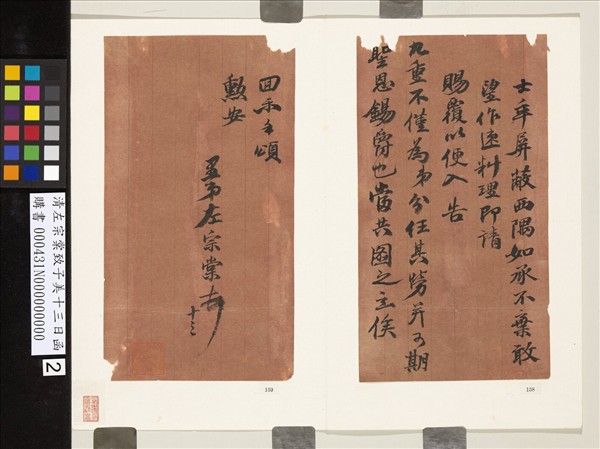 士卒屏蔽西隅如承不棄敢
望作速料理即請
賜覆以便入告
九重不僅為弟分任其勞并可期
聖恩錫爵也當共圖之立俟
回示手頌
勳安
愚弟左宗棠
十三
清左宗棠致子美十三日函
購書 000431N000000000
2
159